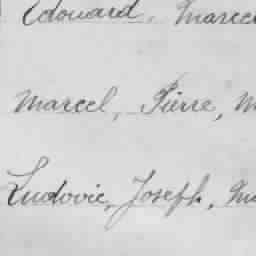 Edouard, Marcel
Marcel, Pierre, M
Ludovic, Joseph, Ma